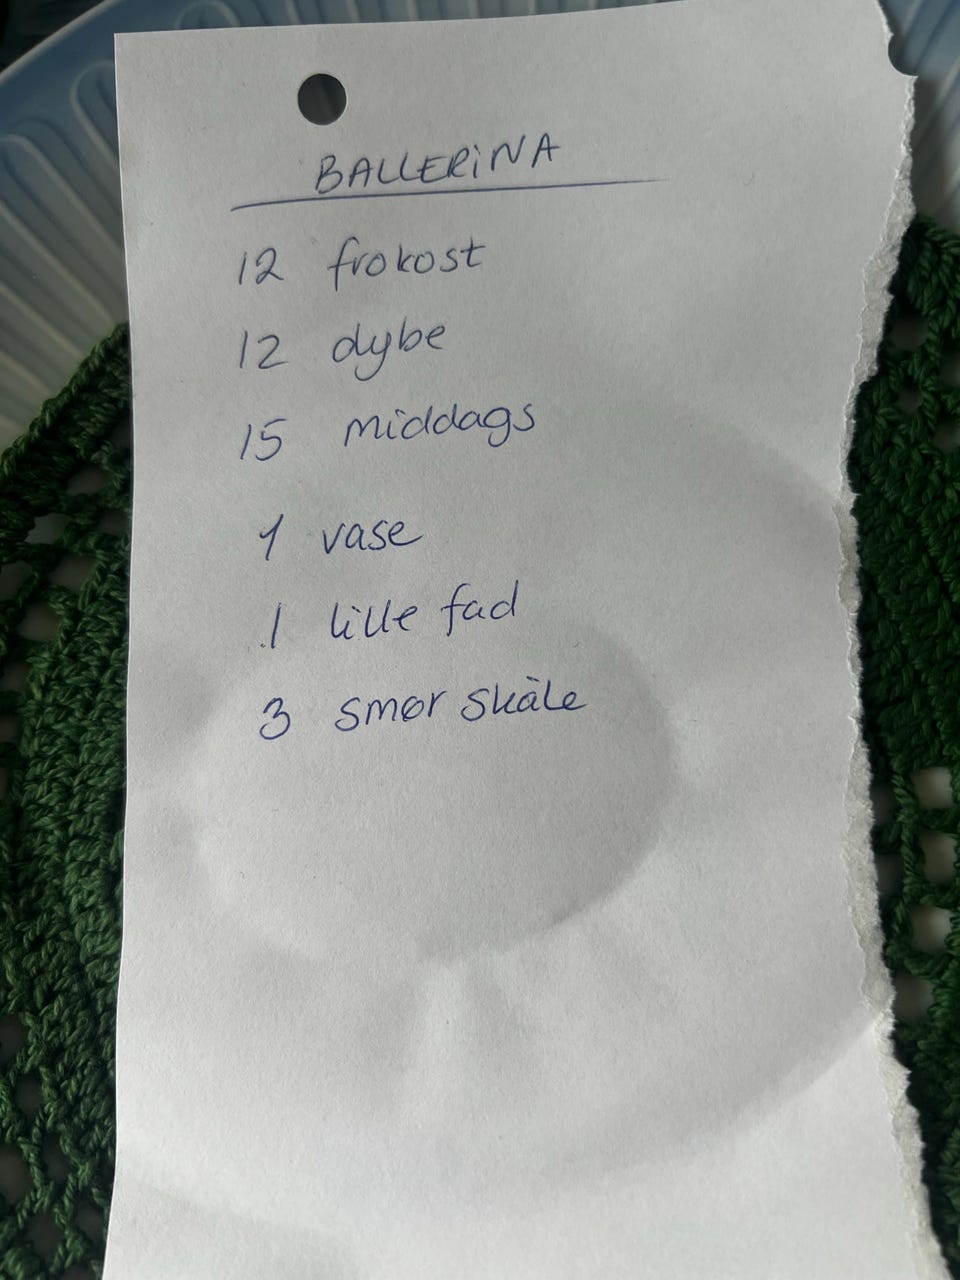 BALLERINA
12 frokost
12 dybe
15 middags
1 vase
1 lille fad
3 smør skåle